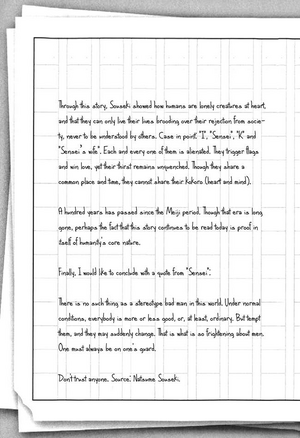 Through this story, Souseki showed how humans are lonely creatures at heart,
and that they can only live their lives brooding over their rejection from socie-
ty, never to be understood by others. Case in point, "I", "Sensei", "K" and
"Sensei's wife". Each and every one of them is alienated. They trigger flags
and win love, yet their thirst remains unquenched. Though they share a
common place and time, they cannot share their kokoro (heart and mind).
A hundred years has passed since the Meiji period. Though that era is long
gone, perhaps the fact that this story continues to be read today is proof in
itself of humanity's core nature.
Finally, I would like to conclude with a quote from "Sensei":
There is no such thing as a stereotype bad man in this world. Under normal
conditions, everybody is more or less good, or, at least, ordinary. But tempt
them, and they may suddenly change. That is what is so frightening about men.
One must always be on one's guard.
Don't trust anyone. Source: Natsume Souseki.